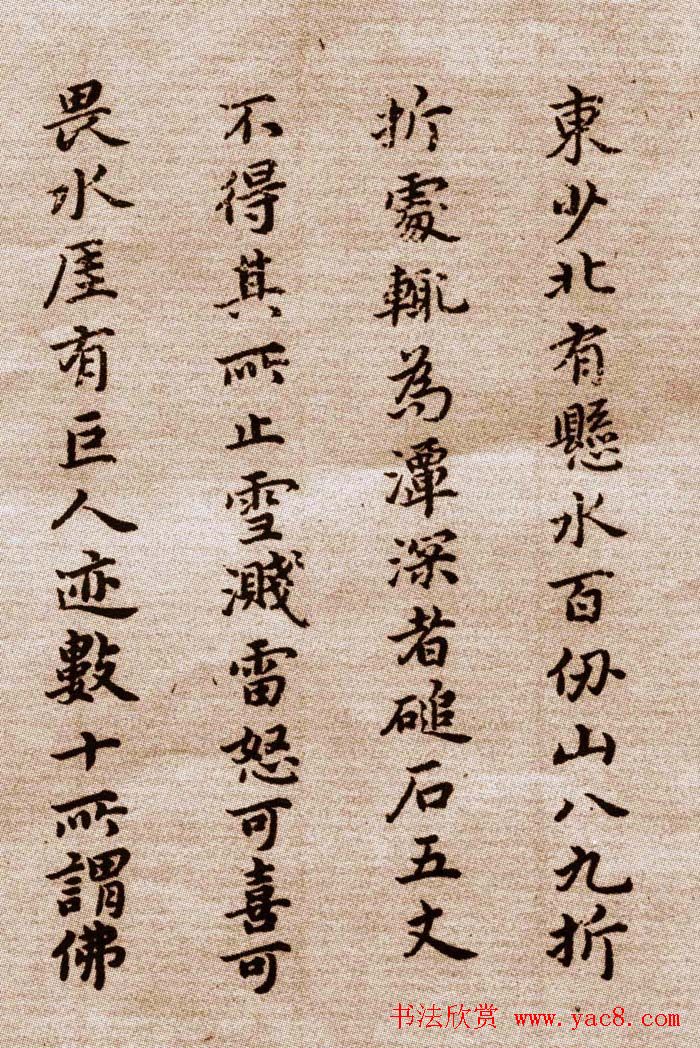 東少北有懸水百仞山八九折
折處輒為潭深者磓石五丈
不得其所止雪濺雷怒可喜可
畏水厓有巨人迹數十所謂佛
书法欣赏 www.yac8.com